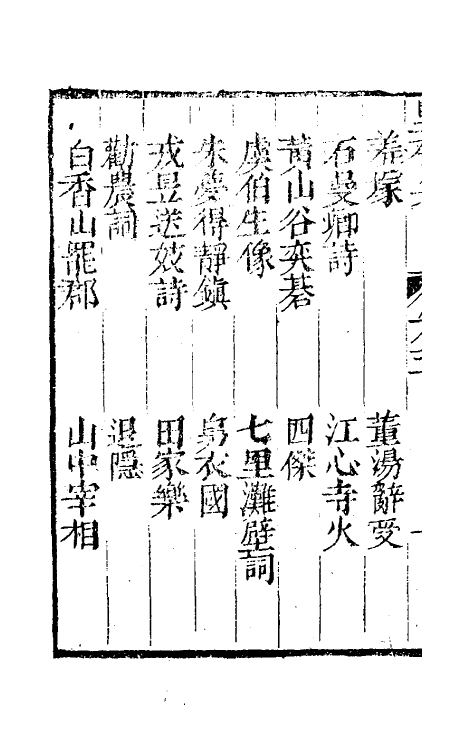 羞塚
董湯辭受
石曼卿詩
江心寺火
黃山谷奕碁
四傑
虞伯生像
七里灘壁詞
朱夢得靜鎮
烏衣國
戎昱送妓詩
田家樂
勸農詞
退隱
白香山罷郡
山中宰相